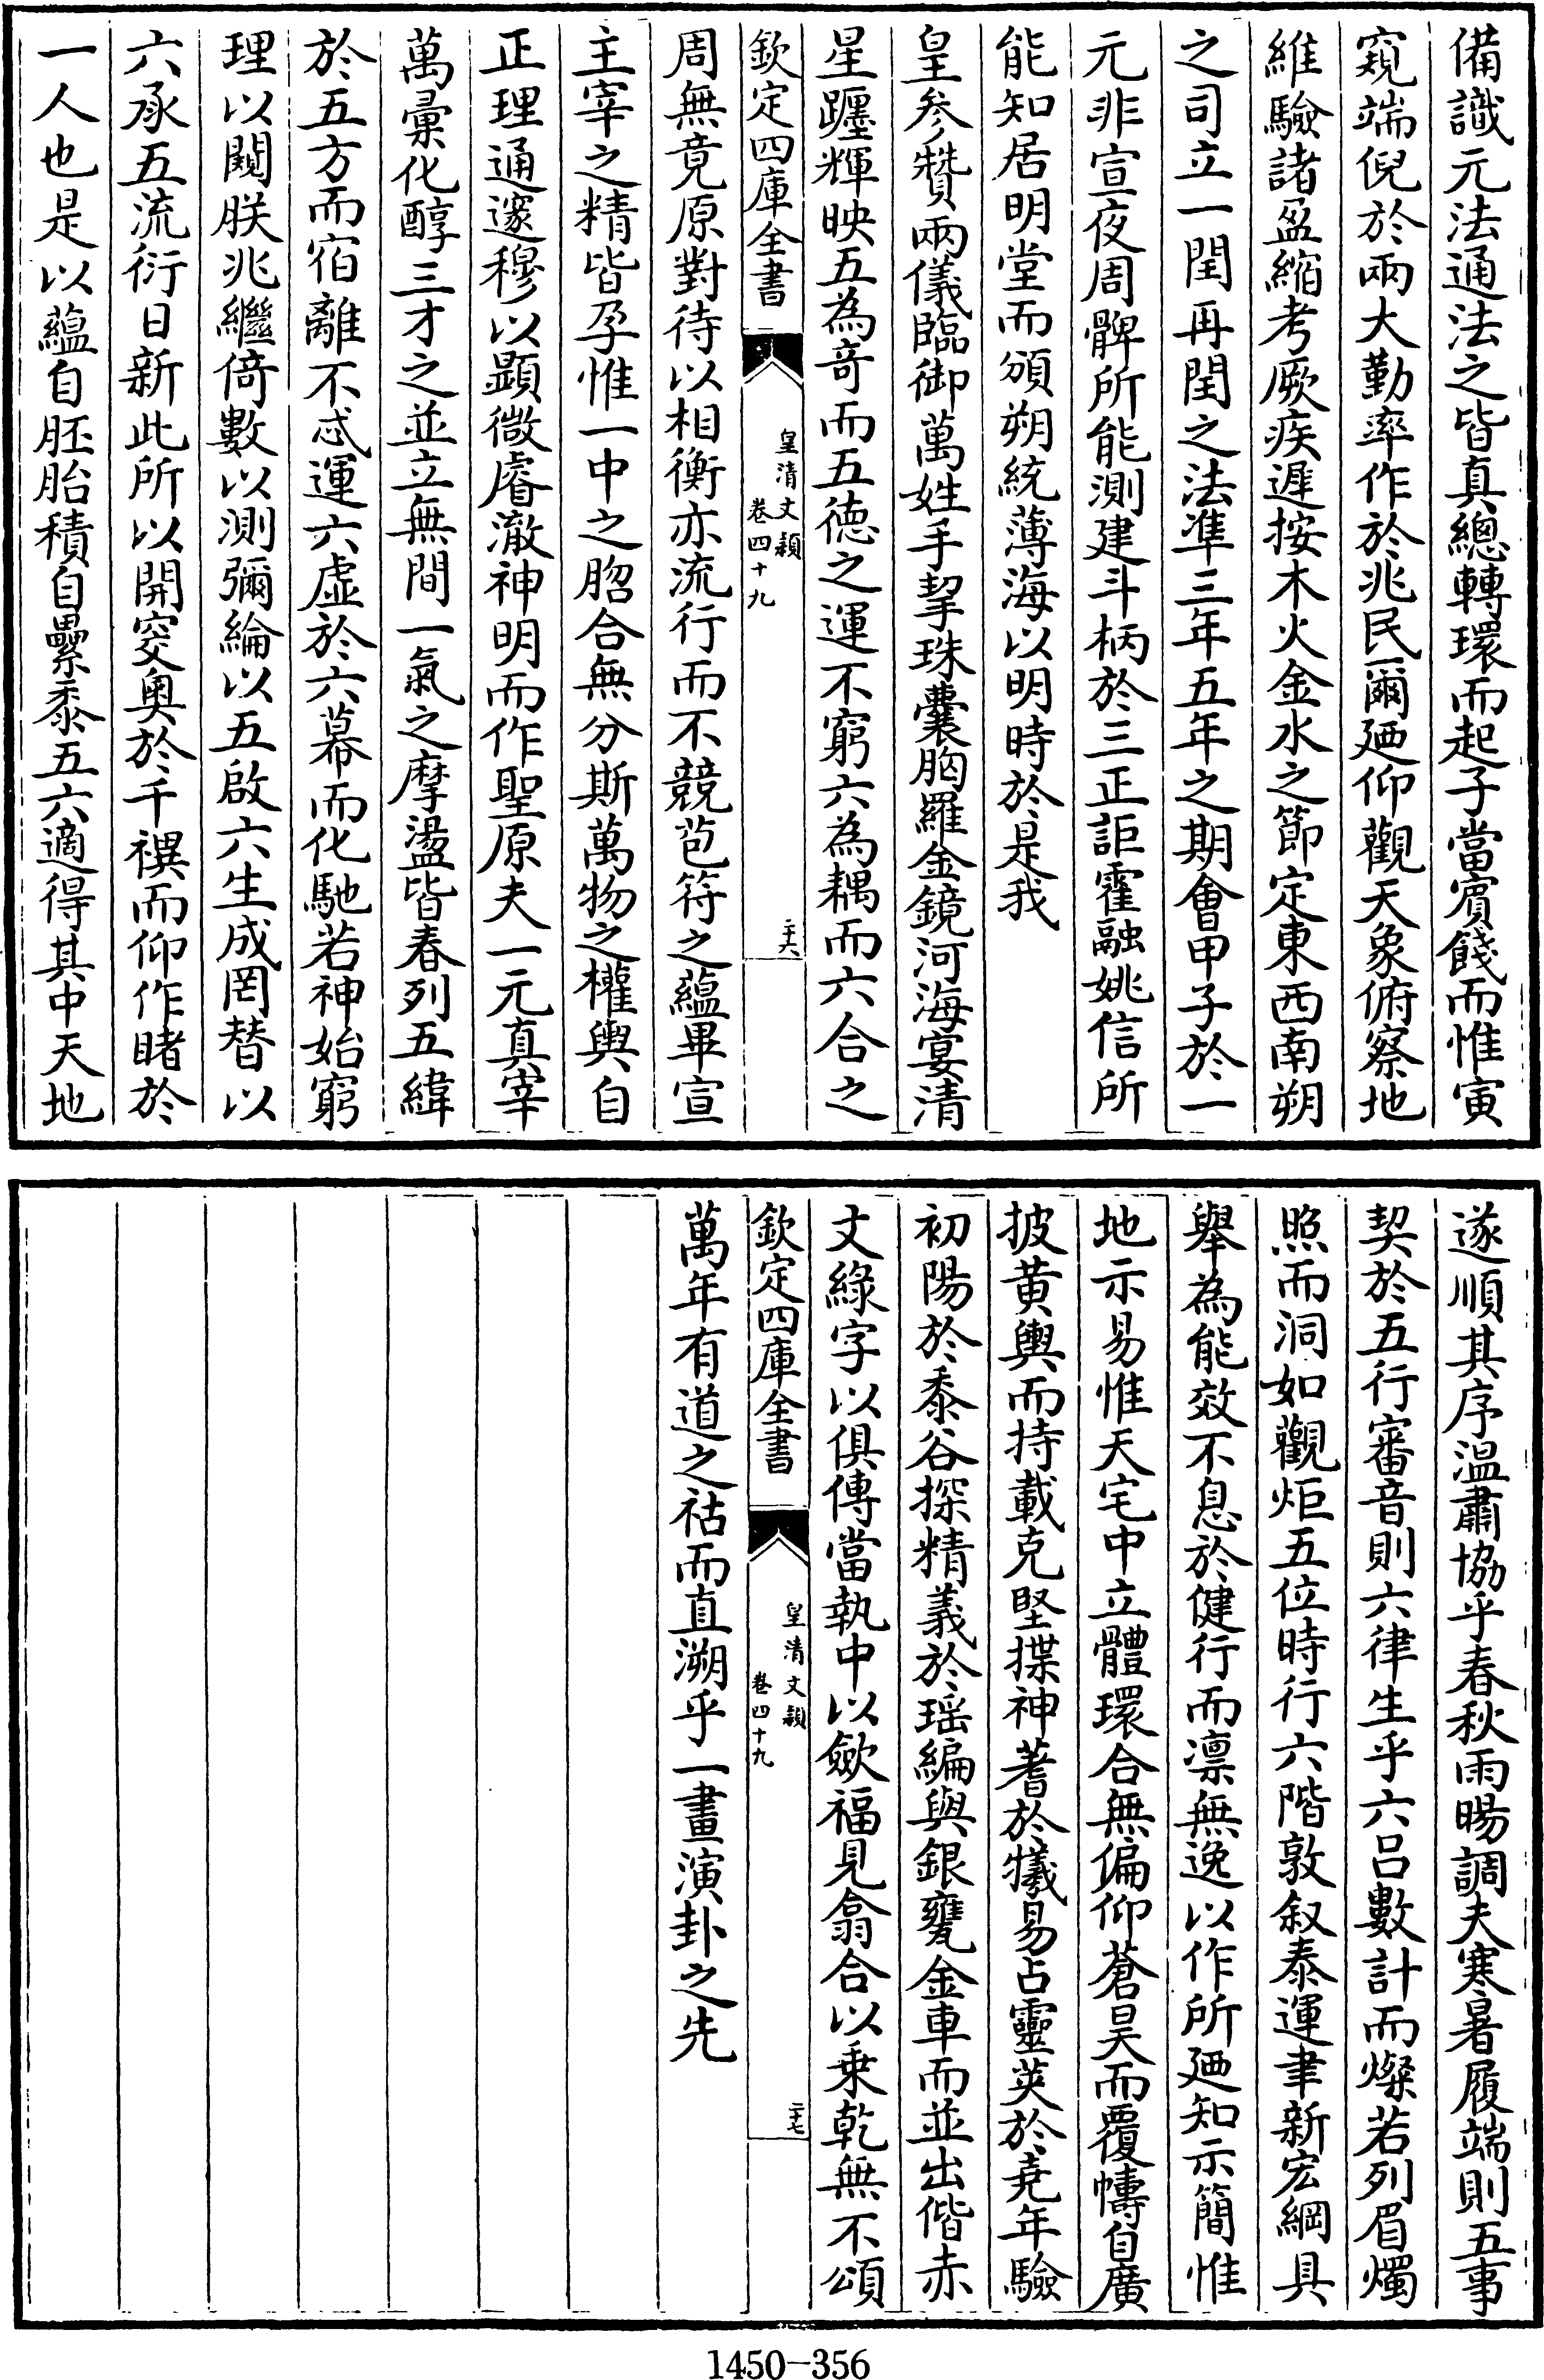 備識元法通法之皆真總轉環而起子當賓餞而惟寅
窺端倪於兩大勤率作於兆民爾廼仰觀天象俯察地
維驗諸盈縮考厥疾遲按木火金水之節定東西南朔
之司立一閏再閏之法準三年五年之期會甲子於一
元非宣夜周髀所能測建斗柄於三正詎霍融姚信所
能知居明堂而頒朔統薄海以明時於是我
皇參贊兩儀臨御萬姓手挈珠囊胸羅金鏡河海宴清
星躔輝映五為奇而五德之運不窮六為耦而六合之
欽定四庫全書
皇清文穎
卷四十九
二十六
周無竟原對待以相衡亦流行而不競苞符之蘊畢宣
主宰之精皆孕惟一中之脗合無分斯萬物之權輿自
正理通邃穆以顯微睿澈神明而作聖原夫一元真宰
萬彙化醇三才之並立無間一氣之摩盪皆春列五緯
於五方而宿離不忒運六虛於六幕而化馳若神始窮
理以闓朕兆繼倚數以測彌綸以五啟六生成罔替以
六承五流衍日新此所以開窔奧於千禩而仰作睹於
一人也是以蘊自胚胎積自纍黍五六適得其中天地
遂順其序溫肅協乎春秋雨暘調夫寒暑履端則五事
契於五行審音則六律生乎六呂數計而燦若列眉燭
照而洞如觀炬五位時行六階敦叙泰運聿新宏綱具
舉為能效不息於健行而凛無逸以作所廼知示簡惟
地示易惟天宅中立體環合無偏仰蒼昊而覆幬自廣
披黄輿而持載克堅揲神蓍於犧易占靈莢於堯年驗
初陽於黍谷探精義於瑶編與銀甕金車而並出偕赤
文綠字以俱傳當執中以歛福見翕合以乗乾無不頌
欽定四庫全書
皇清文穎
卷四十九
二十七
萬年有道之祜而直溯乎一畫演卦之先
1450-356